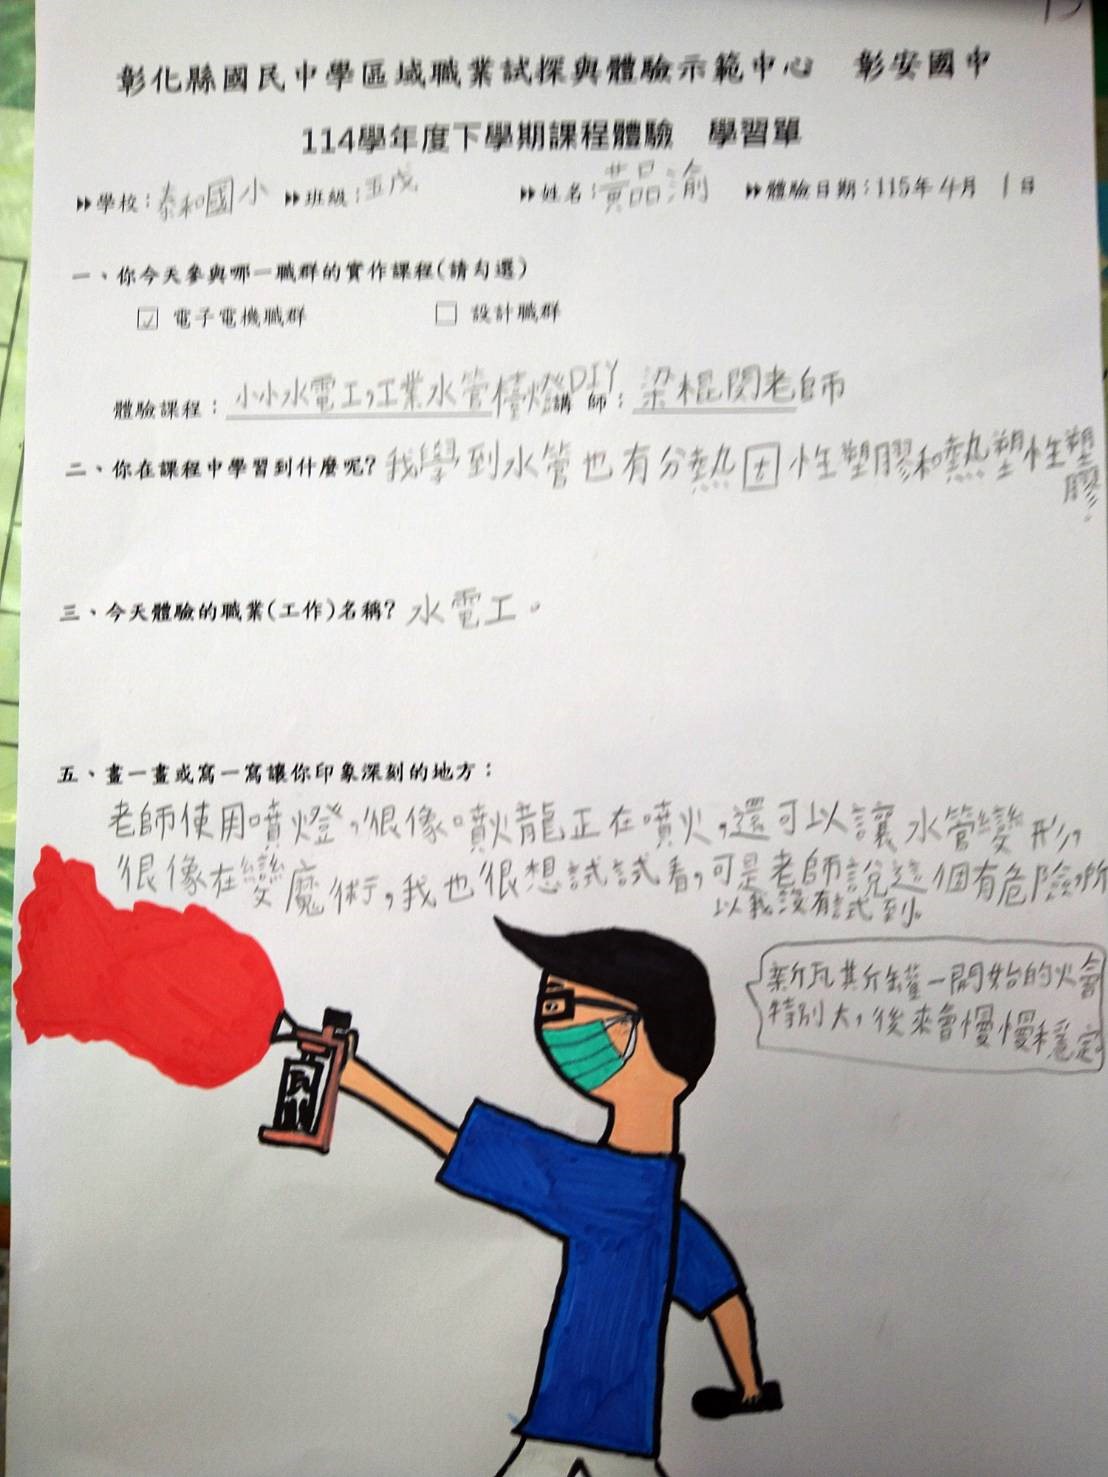 彰化縣國民中學區域職業試探與體驗示範中心 彰安國中
114學年度下學期課程體驗 學習單
學校:泰和國小 班級:五戊 姓名:黃品渝 體驗日期:115年4月1日
一、你今天參與哪一職群的實作課程(請勾選)
☑ 電子電機職群 □ 設計職群
體驗課程:小小水電工,工業水管檯燈DIY 講師:梁棍閔老師
二、你在課程中學習到什麼呢?我學到水管也有分熱固性塑膠和熱塑性塑
膠。
三、今天體驗的職業(工作)名稱?水電工。
五、畫一畫或寫一寫讓你印象深刻的地方:
老師使用噴燈,很像噴火龍正在噴火,還可以讓水管變形,
很像在變魔術,我也很想試試看,可是老師說這個有危險,所
以我沒有試到。
新瓦斯罐一開始的火會
特別大,後來會慢慢穩定
瓦